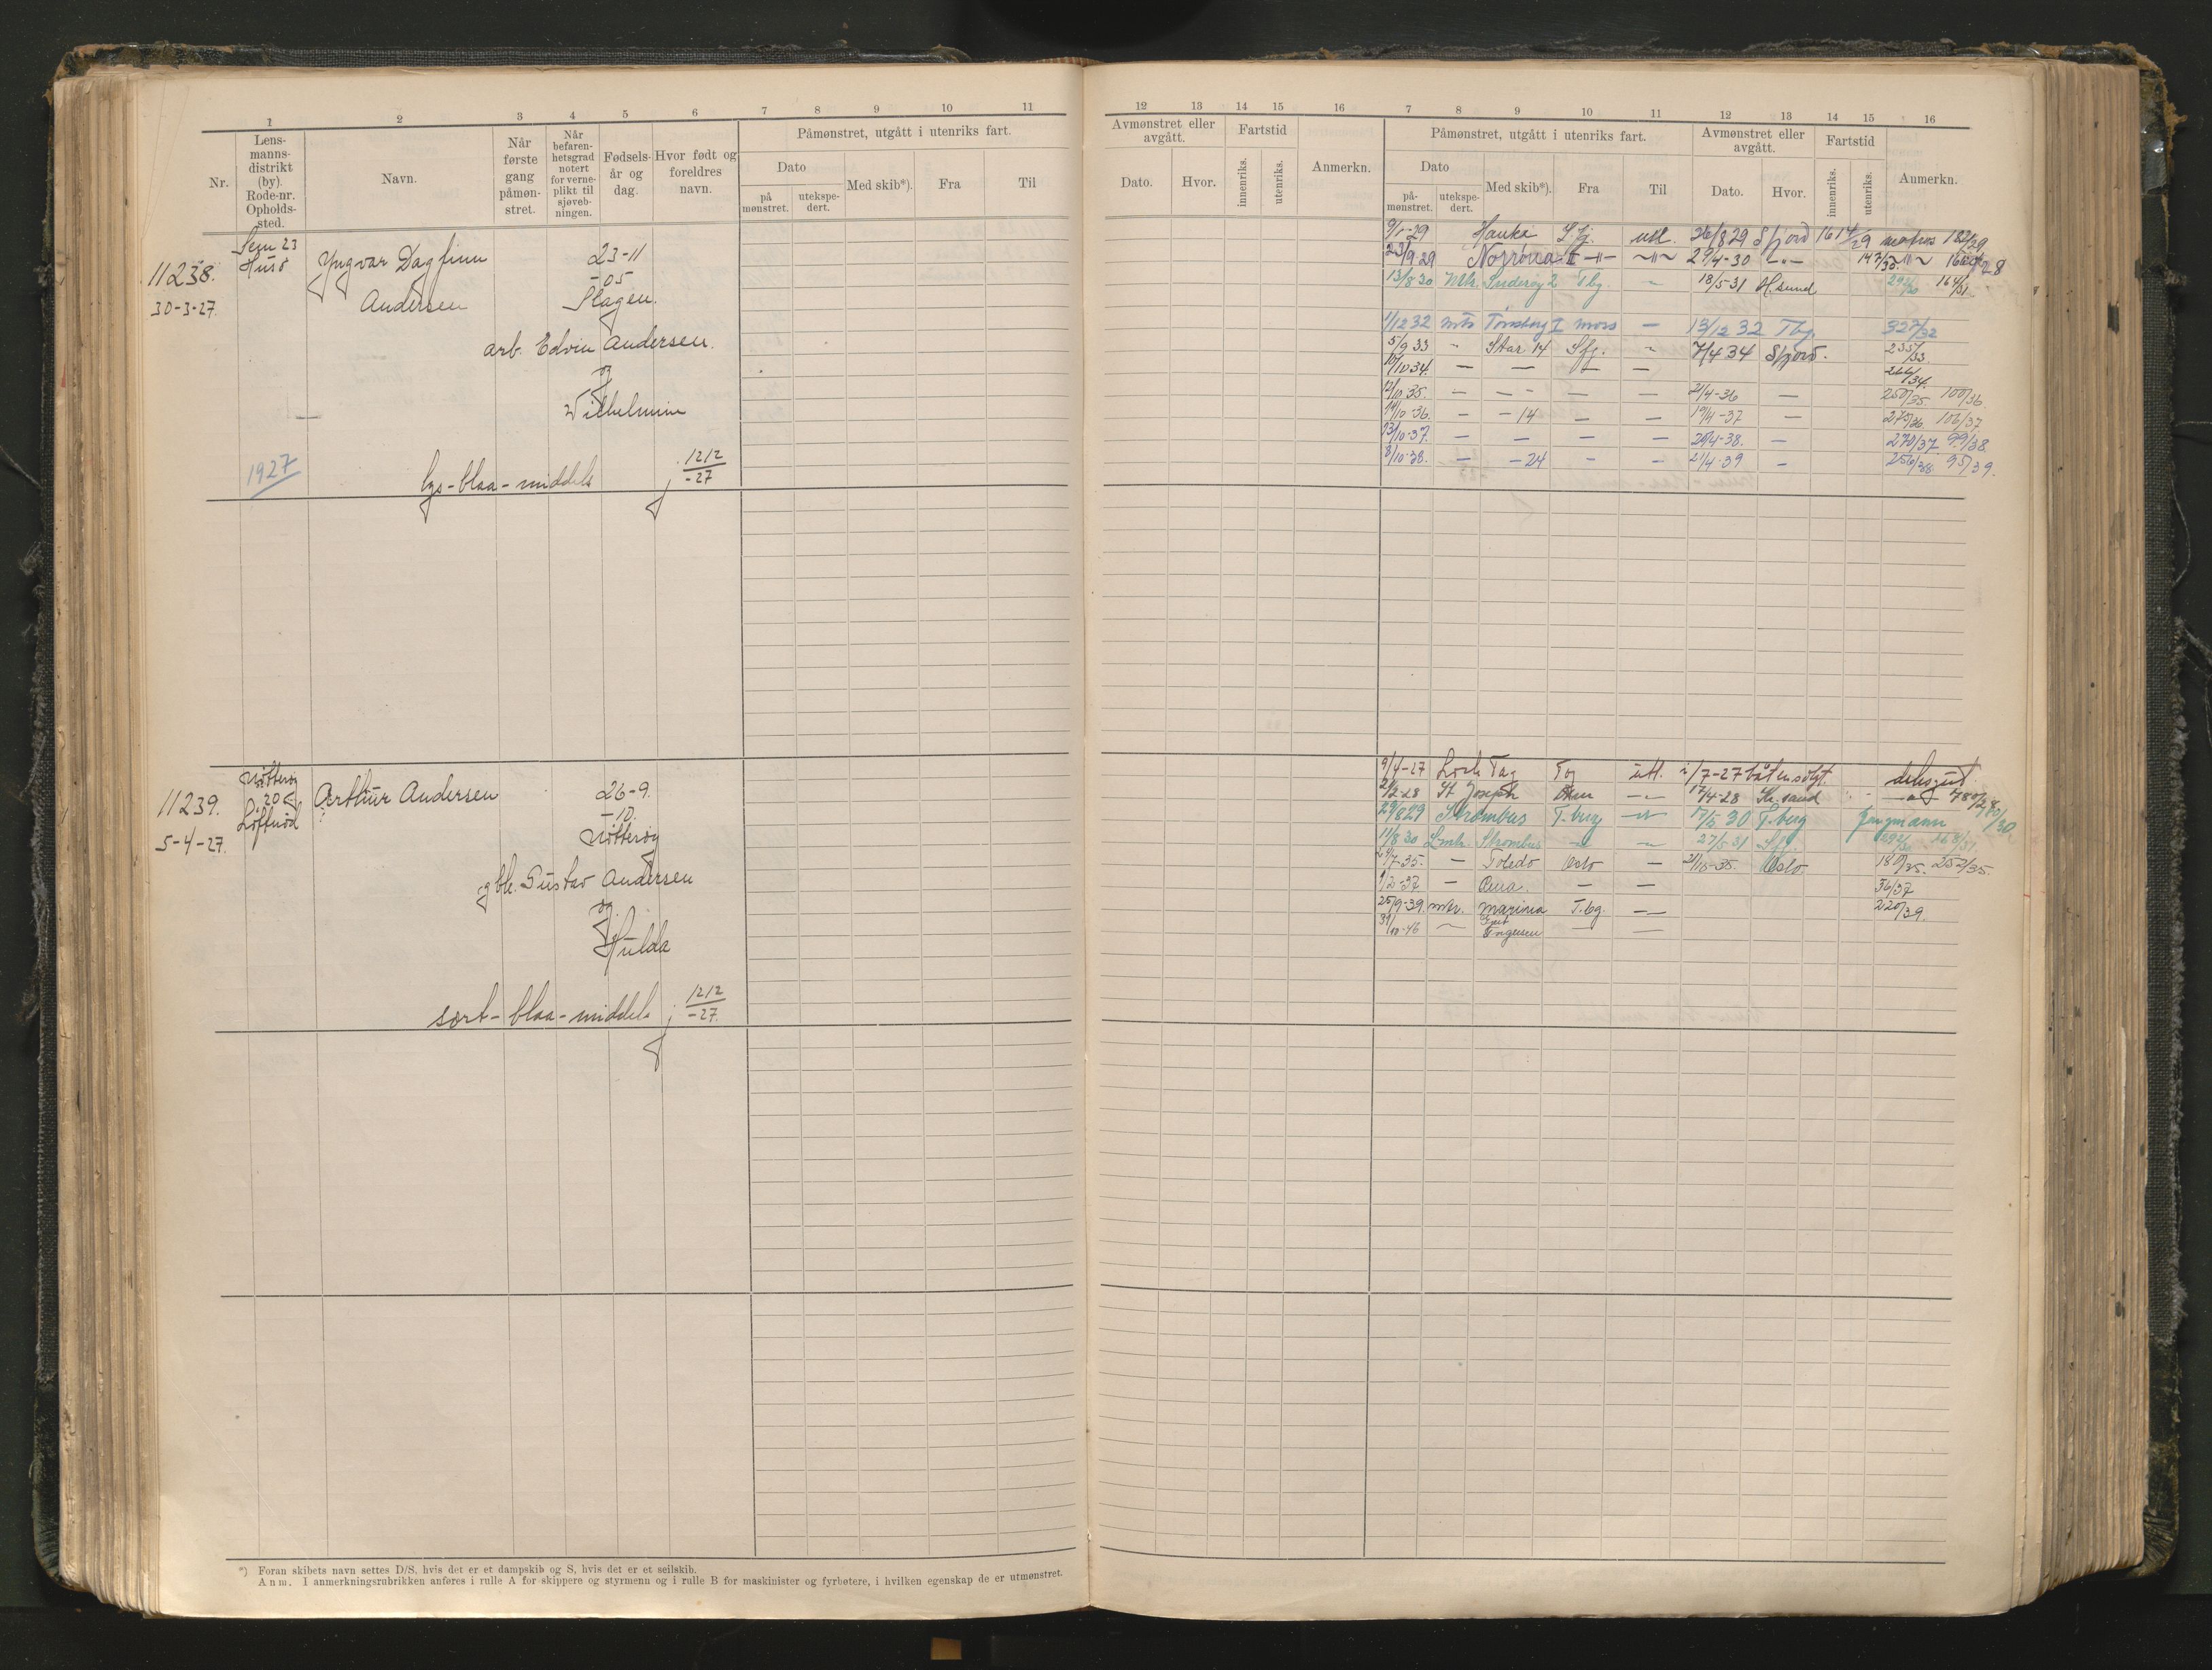 1 2 3 4 5 6 7 8 9 10 11
Nr.
Lens-
manns-
distrikt
(by).
Rode-nr.
Opholds-
sted.
Navn.
Når
første
gang
påmøn-
stret.
Når
befaren-
hetsgrad
notert
for verne-
plikt til
sjøveb-
ningen.
Fødsels-
år og
dag.
Hvor født og
foreldres
navn.
Påmønstret, utgått i utenriks fart.
Dato
på
mønstret.
utekspe-
dert.
Med skib*).
Fra
Til
11238.
30-3-27.
Sem 23
Husö
Yngvar Dagfinn
Andersen
23-11
-05
Slagen.
arb. Edvin Andersen.
og
Wilhelmine
1927
lys-blaa-middels
1212
-27
11239.
5-4-27.
Nøtterøy
20
Arthur Andersen
26-9.
-10.
Nøtterøy
gbr. Gustav Andersen
og
Hulda
sort-blaa-middels
1212
-27.
*) Foran skibets navn settes D/S, hvis det er et dampskib og S, hvis det er et seilskib.
Anm. I anmerkningsrubrikken anføres i rulle A for skippere og styrmenn og i rulle B for maskinister og fyrbøtere, i hvilken egenskap de er utmønstret.
12 13 14 15 16 7 8 9 10 11 12 13 14 15 16
Avmønstret eller
avgått.
Dato.
Hvor.
Fartstid
innenriks.
utenriks.
Anmerkn.
Påmønstret, utgått i utenriks fart.
Dato
på-
mønstret.
utekspe-
dert.
Med skib*).
Fra
Til
Avmønstret eller
avgått.
Dato.
Hvor.
Fartstid
innenriks.
utenriks.
Anmerkn.
9/1-29 Hauka Sfj. utl. 26/8 29 Sfjord matros
23/9-29 Norrøna II -"- -"- 29/4-30 -"-
13/8 30 Mtr. Suderøy 2 Tbg. - 18/5-31 H.sund 164/31
1/12 32 mtr Tønsberg I moss - 13/12 32 Tbg. 327/32
5/9 33 " Star 14 Sfj. " 7/4 34 Sfjord. 235/33.
10/10 34. - - - - 266/34.
12/10-35. - - - - 21/4-36 - 250/35. 100/36
14/10-36. - - 14 - - 19/4-37 - 275/36 106/37
13/10-37. - - - - 20/4-38. - 270/37. 99/38.
8/10-38. - - 24 - - 21/4-39 - 256/38. 95/39.
9/4-27 Loch Tay utl. /7-27 båten solgt. deksgut.
2/2-28 St Joseph -"- 17/4-28 Kr.sand -"- 780/28
29/8 29 Strombus T.berg -"- 17/5 30 T.berg jungmann
11/8 30 Lmtr. Strombus - - 27/5-31 Sfj.
24/7-35. - Toledo Oslo - 21/10-35. Oslo 180/35. 252/35.
1/2-37 - - - 36/37
25/9-39. mtr. Marina T.bg. - 220/39.
31/10-46 - Ingersen - -